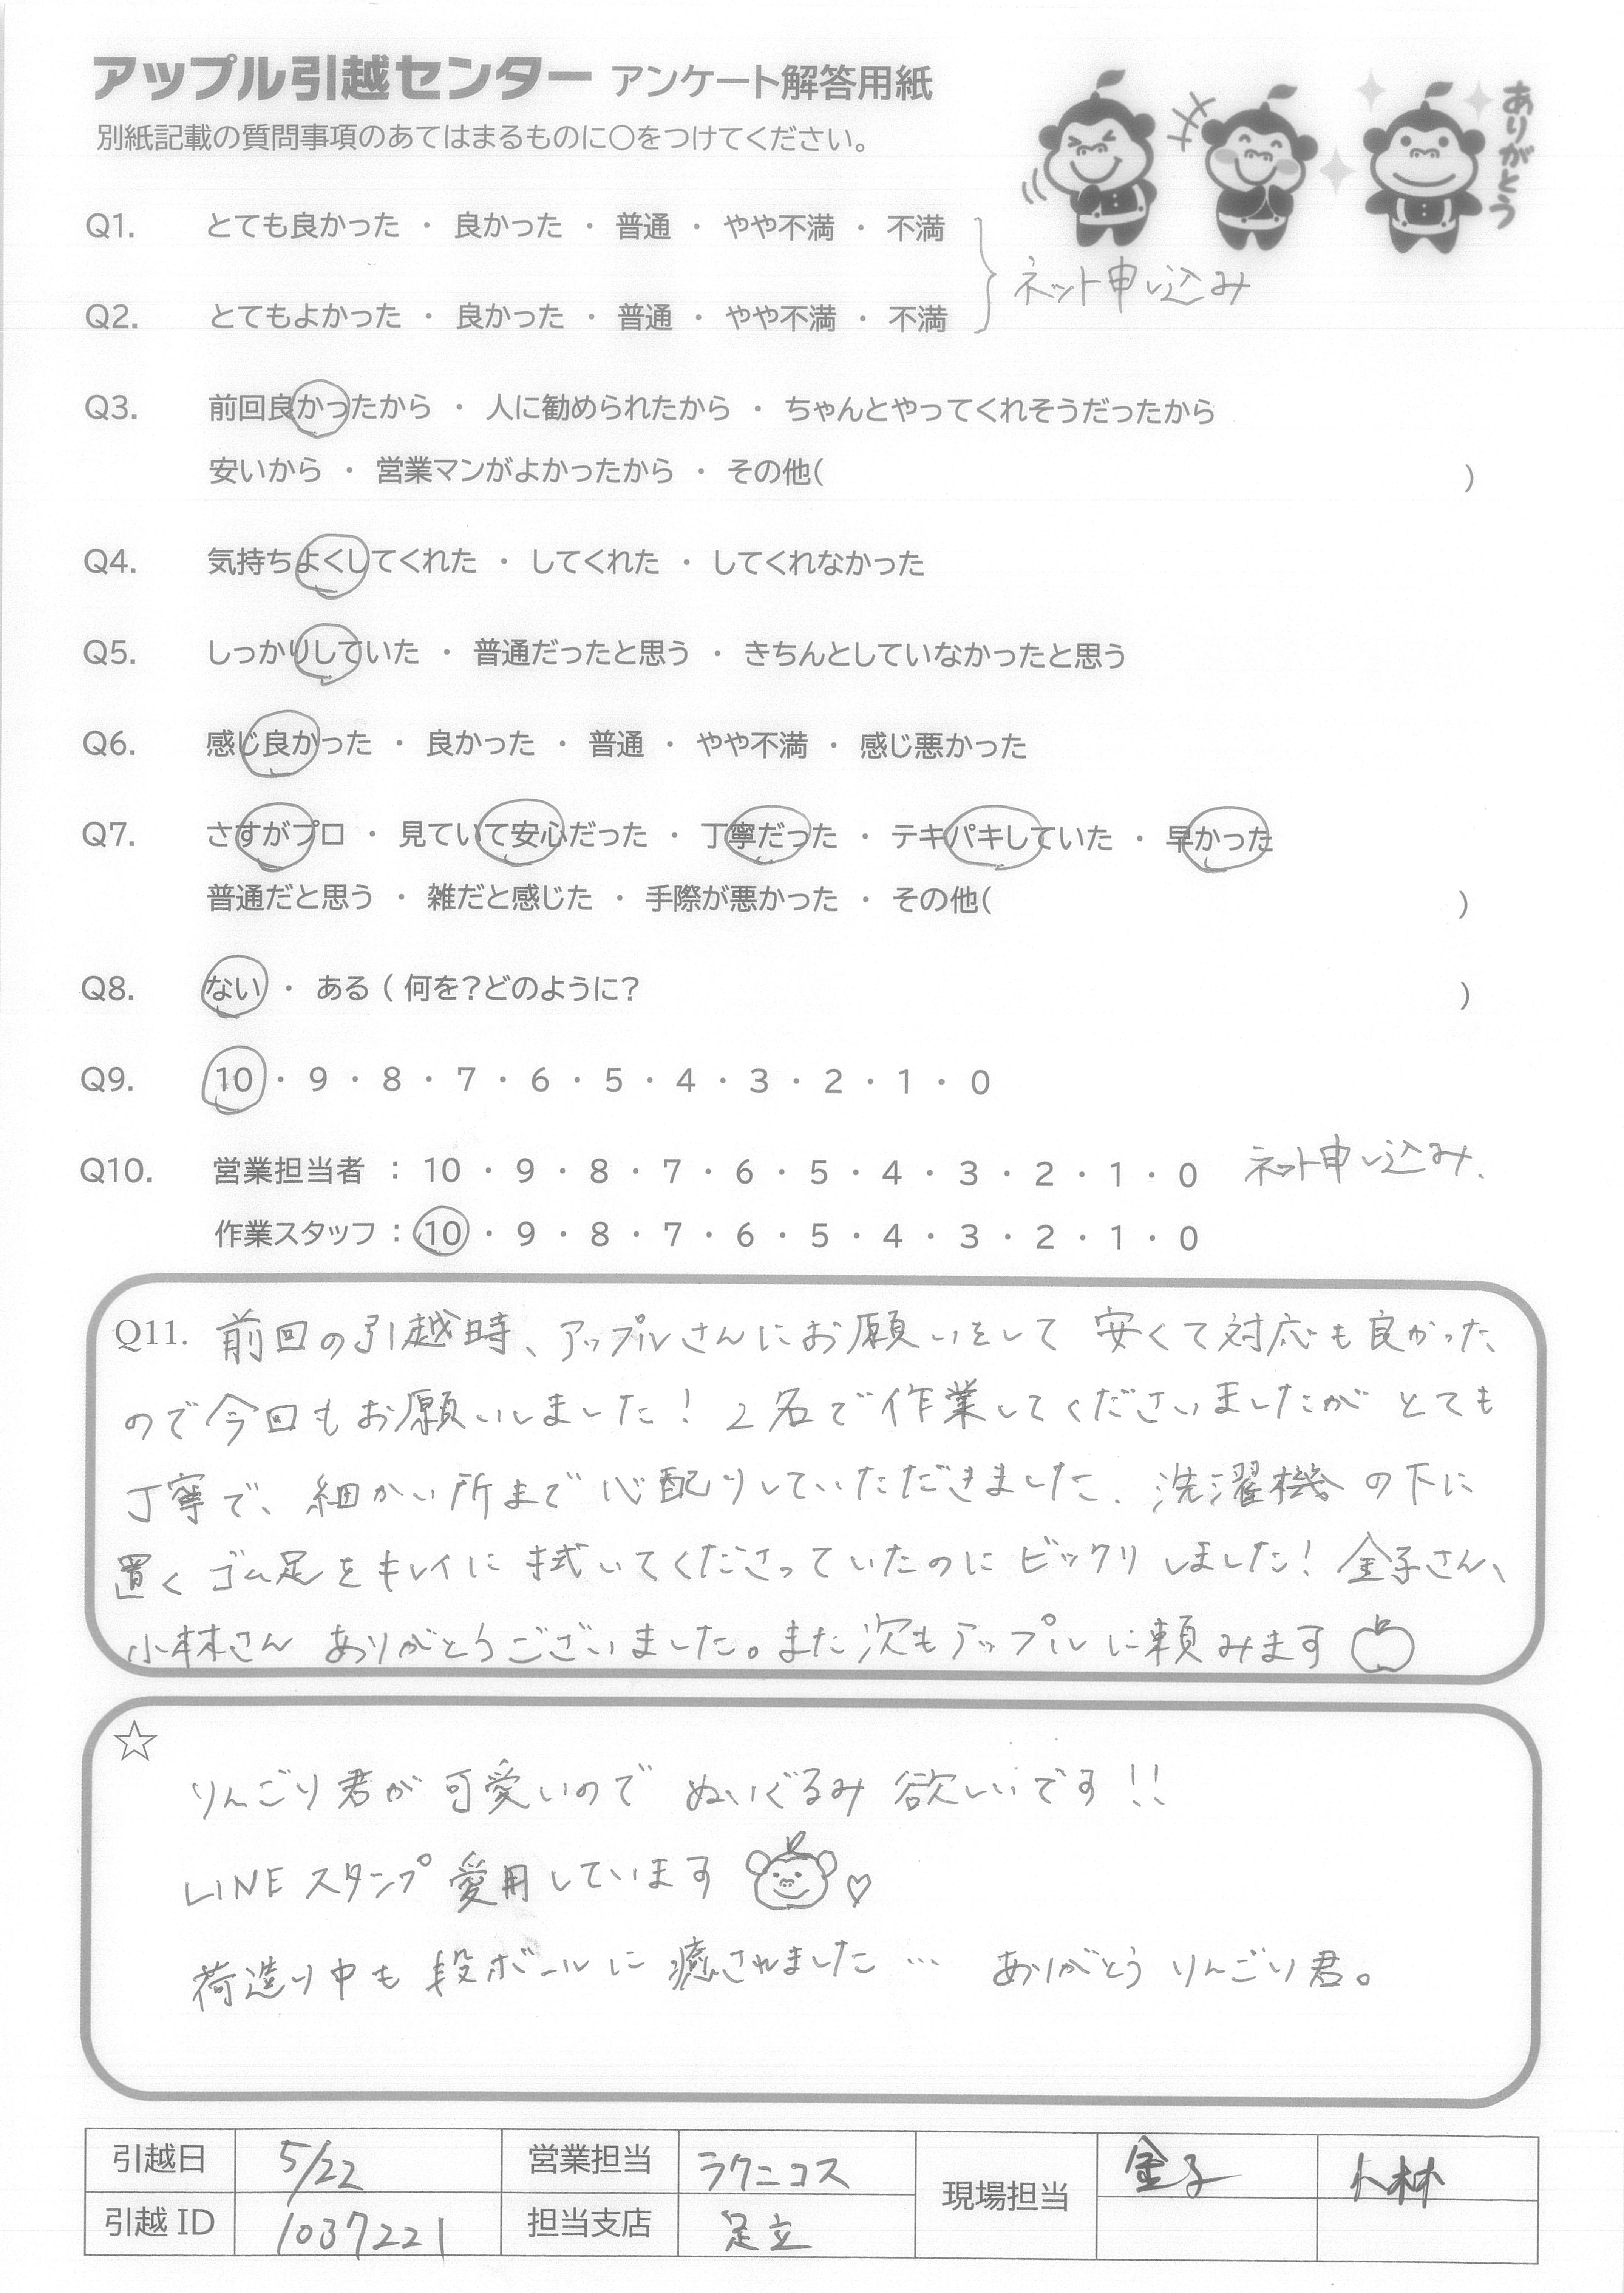 アップル引越センター アンケート解答用紙
別紙記載の質問事項のあてはまるものに○をつけてください。
ありがとう
Q1. とても良かった ・ 良かった ・ 普通 ・ やや不満 ・ 不満
ネット申し込み
Q2. とてもよかった ・ 良かった ・ 普通 ・ やや不満 ・ 不満
Q3. 前回良かったから ・ 人に勧められたから ・ ちゃんとやってくれそうだったから
安いから ・ 営業マンがよかったから ・ その他( )
Q4. 気持ちよくしてくれた ・ してくれた ・ してくれなかった
Q5. しっかりしていた ・ 普通だったと思う ・ きちんとしていなかったと思う
Q6. 感じ良かった ・ 良かった ・ 普通 ・ やや不満 ・ 感じ悪かった
Q7. さすがプロ ・ 見ていて安心だった ・ 丁寧だった ・ テキパキしていた ・ 早かった
普通だと思う ・ 雑だと感じた ・ 手際が悪かった ・ その他( )
Q8. ない ・ ある ( 何を?どのように? )
Q9. 10 ・ 9 ・ 8 ・ 7 ・ 6 ・ 5 ・ 4 ・ 3 ・ 2 ・ 1 ・ 0
Q10. 営業担当者 : 10 ・ 9 ・ 8 ・ 7 ・ 6 ・ 5 ・ 4 ・ 3 ・ 2 ・ 1 ・ 0 ネット申し込み.
作業スタッフ : 10 ・ 9 ・ 8 ・ 7 ・ 6 ・ 5 ・ 4 ・ 3 ・ 2 ・ 1 ・ 0
Q11. 前回の引越時、アップルさんにお願いをして 安くて対応も良かった
ので今回もお願いしました! 2名で作業してくださいましたが とても
丁寧で、細かい所まで心配りしていただきました。洗濯機の下に
置くゴム足をキレイに拭いてくださっていたのにビックリしました! 金子さん、
小林さん ありがとうございました。また次もアップルに頼みます
☆
りんごり君が可愛いので ぬいぐるみ欲しいです!!
LINEスタンプ愛用しています ♡
荷造り中も段ボールに癒されました… ありがとう りんごり君。
引越日 5/22 営業担当 ラクニコス 現場担当 金子 小林
引越 ID 1037221 担当支店 足立